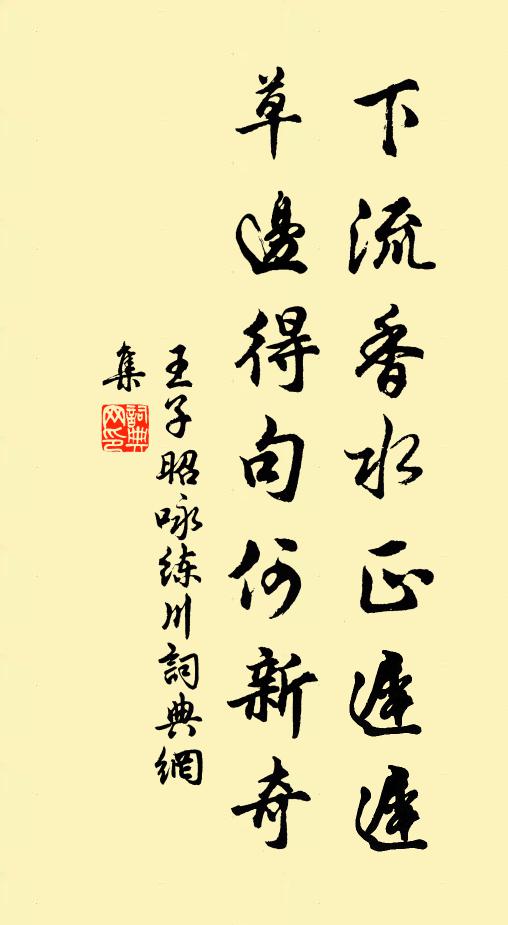 下流香水正遲遲
草邊得句何新奇
王子昭咏练川詞典網
集
詞典网印